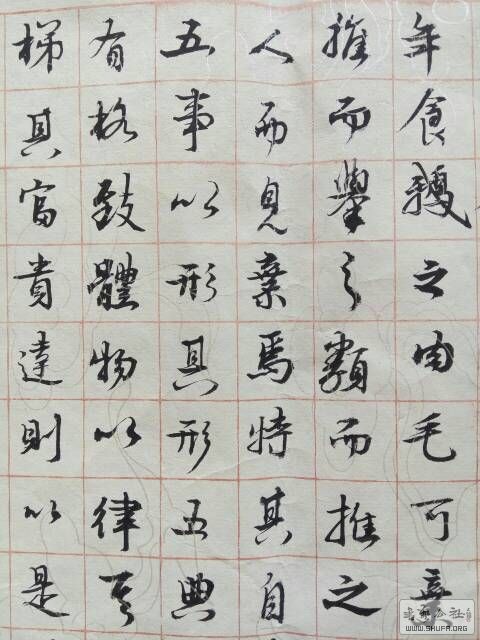 年食之肉毛可
推而舉之類而推之
人而見棄焉特其自
五事以形具形五典
有格致體物以律
梯其富貴達則以是
书法公社
WWW.SHUFA.ORG